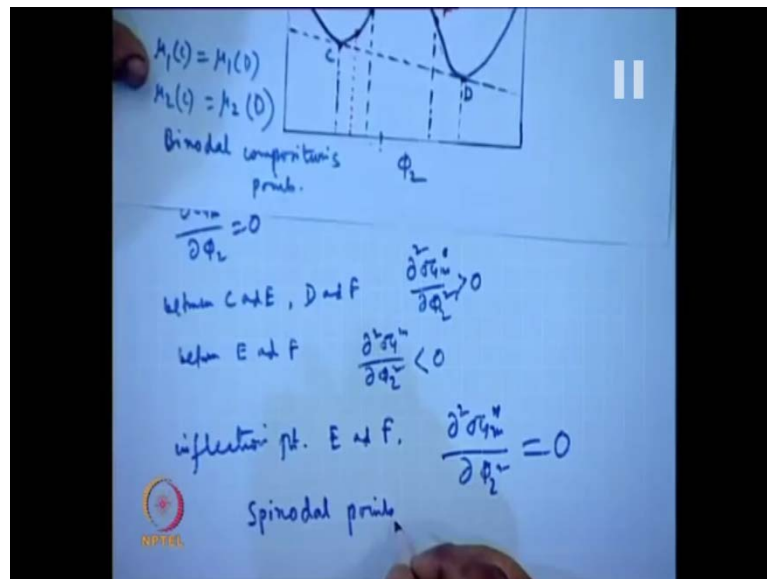 μ₁(C) = μ₁(D)
μ₂(C) = μ₂(D)
Binodal compositions
points.
C
D
ϕ₂
∂ϕ₂ = 0
between C and E, D and F ∂²ΔGₘ*/∂ϕ₂² > 0
between E and F ∂²ΔG*/∂ϕ₂² < 0
inflection pt. E and F. ∂²ΔGₘ*/∂ϕ₂² = 0
Spinodal points
NPTEL